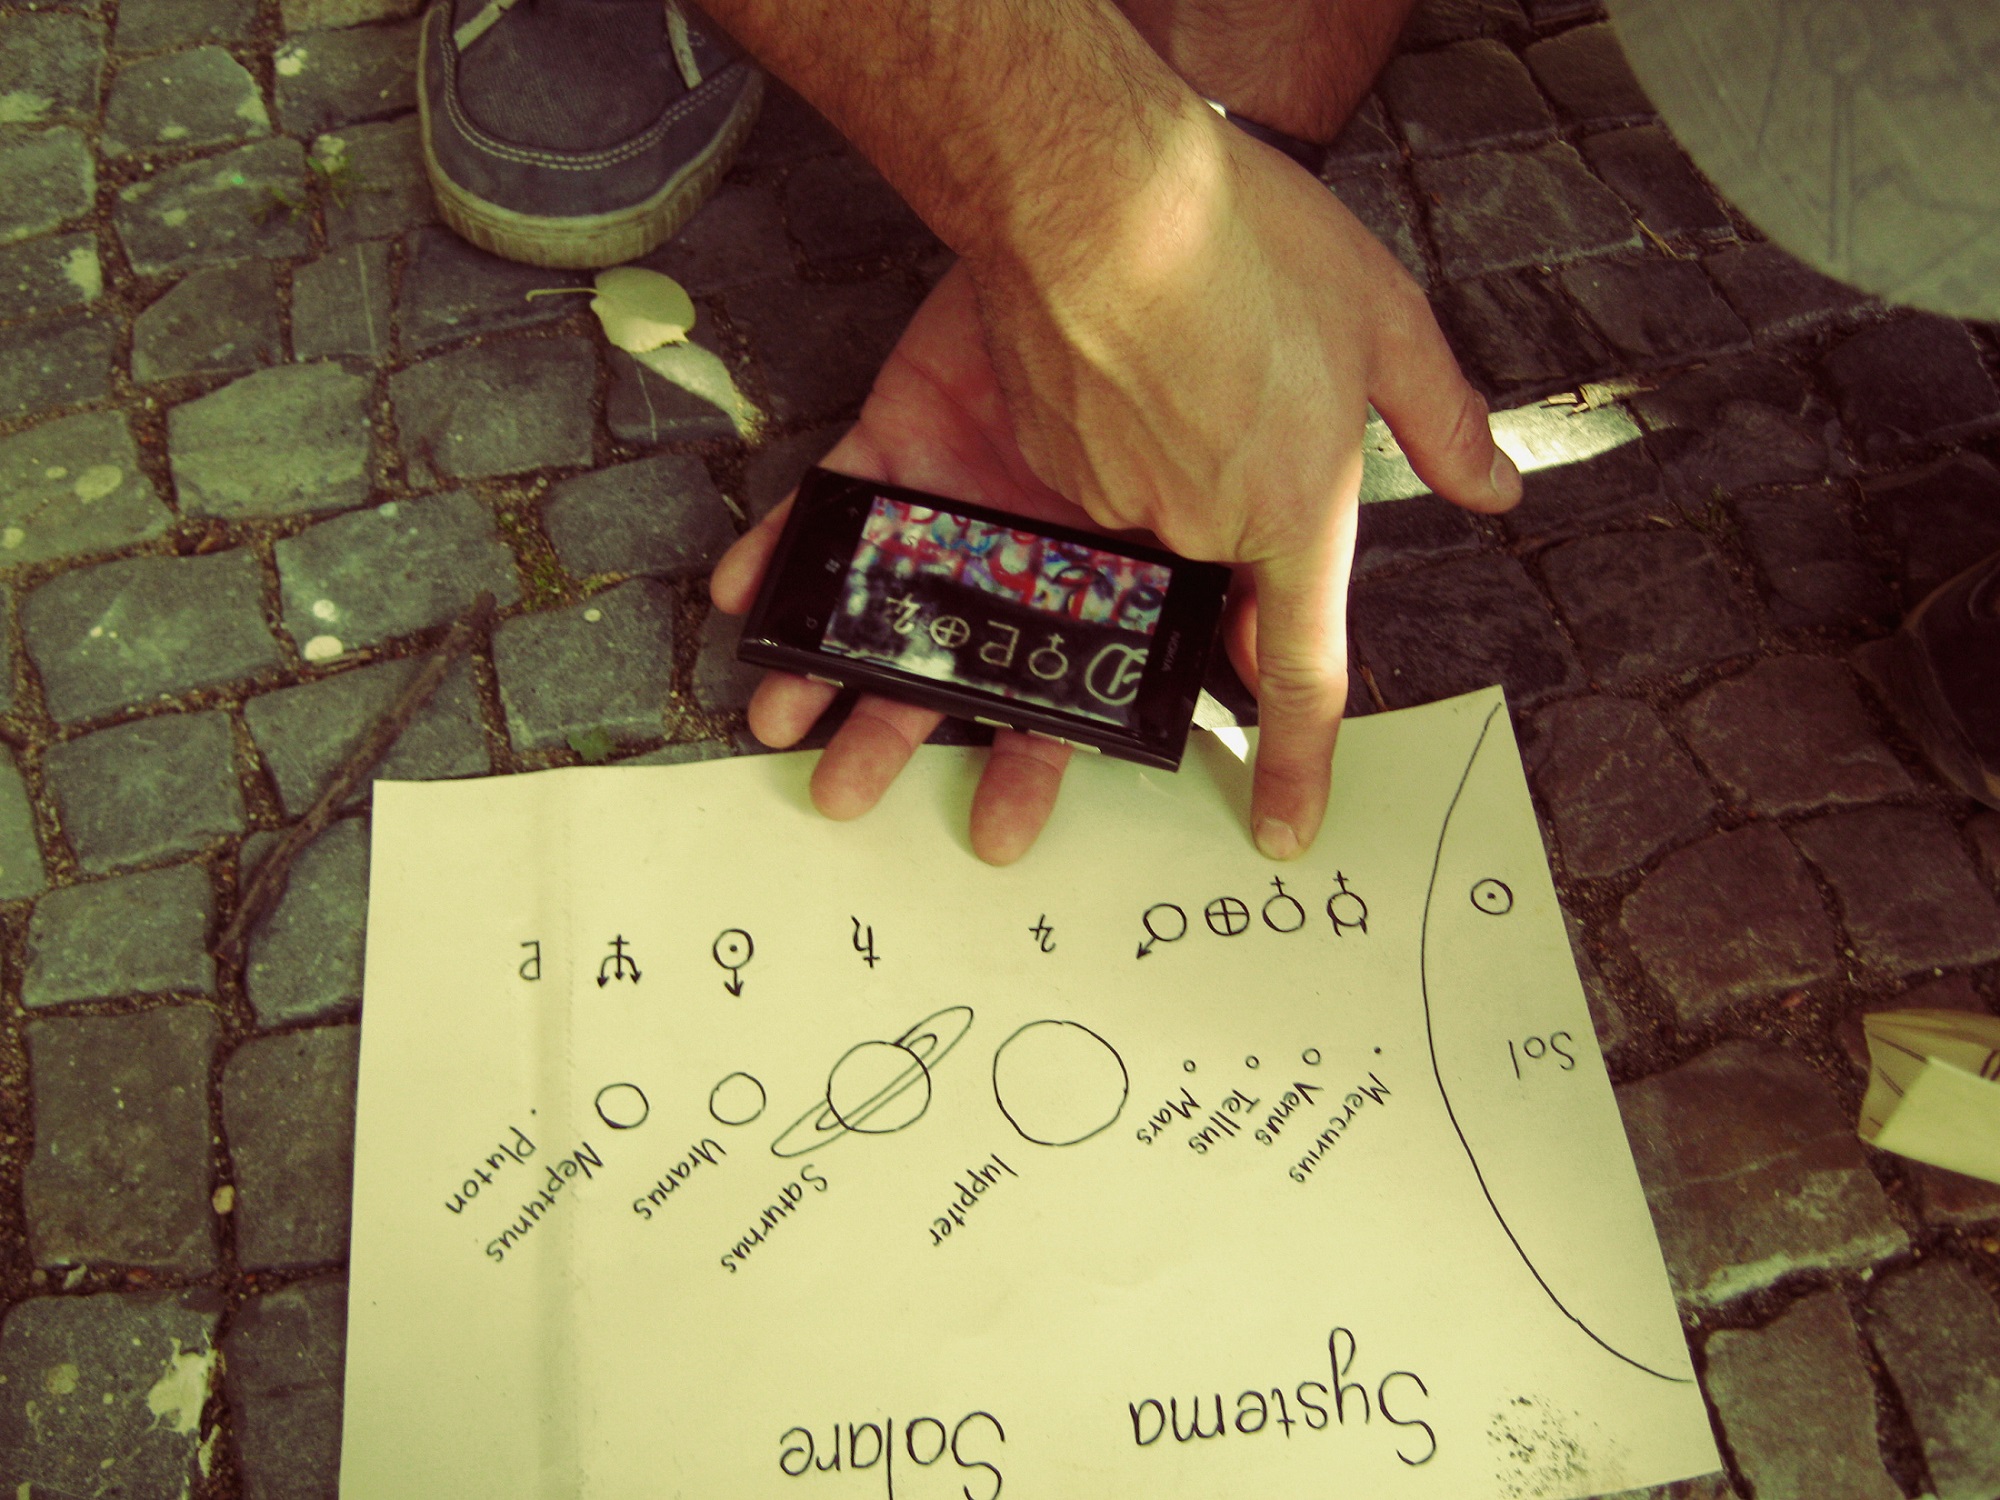 Systema Solare
Sol
Mercurius
Venus
Tellus
Mars
Iuppiter
Saturnus
Uranus
Neptunus
Pluton
☉ ☿ ♀ ⊕ ♂ ♃ ♄ ⛢ ♆ ♇
NOKIA
① ♀ ♇ ⊕ ♃